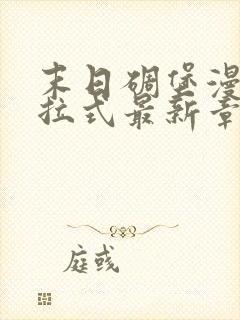 末日碉堡漫
拉式最新章
庭彧